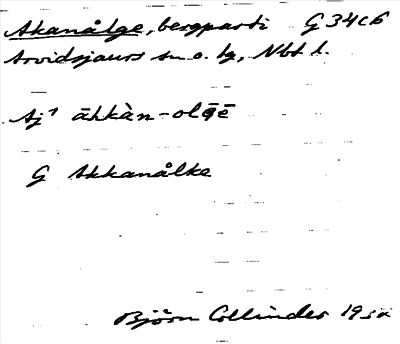 Akanålge, bergparti G 34c6
Arvidsjaurs sn o. tg, Nbt l.
Aj¹ āhkàn-olǥē
G Akkanålke
Björn Collinder